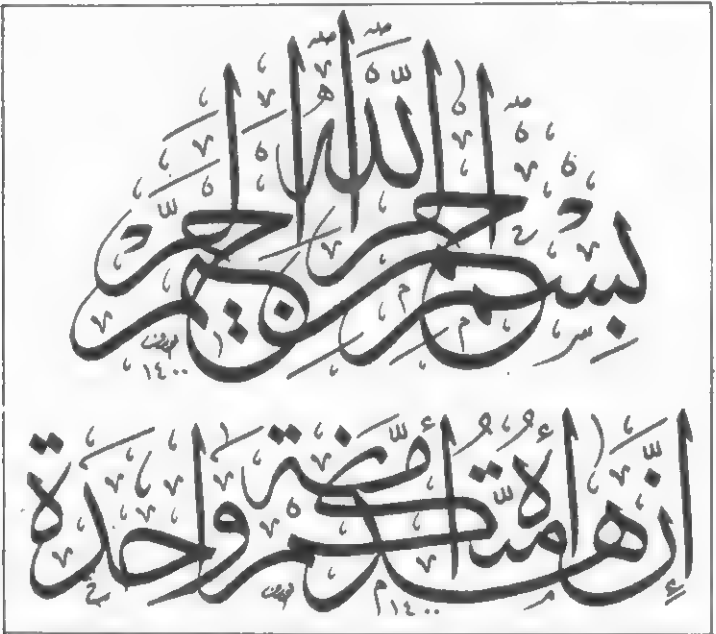 بِسْمِ اللهِ الرَّحْمٰنِ الرَّحِيمِ
١٤٠٠
إِنَّ هٰذِهِ أُمَّتُكُمْ أُمَّةً وَاحِدَةً
١٤٠٠